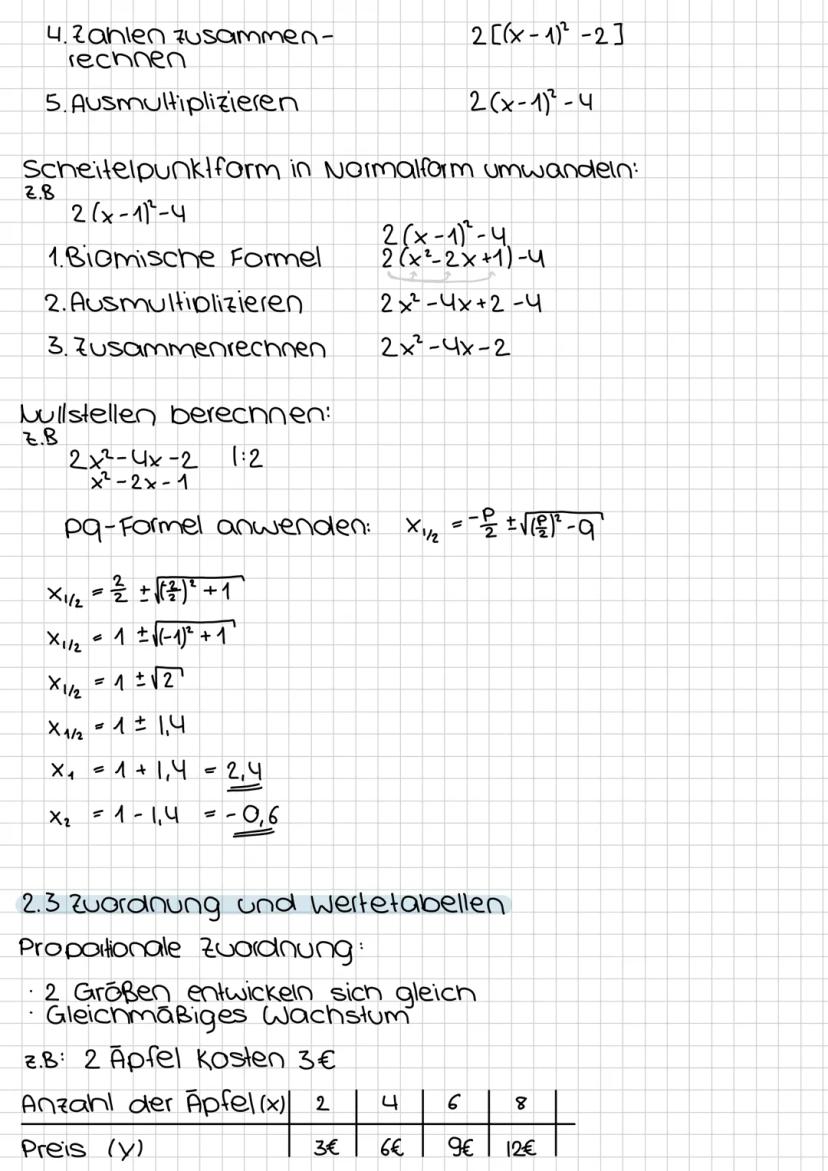 4. Zahlen zusammen- 2[(x-1)² -2]
rechnen
5. Ausmultiplizieren 2(x-1)² -4
Scheitelpunktform in Normalform umwandeln:
z.B
2(x-1)²-4
2(x-1)²-4
1. Biomische Formel 2(x²-2x+1)-4
2. Ausmultiplizieren 2x²-4x+2-4
3. Zusammenrechnen 2x²-4x-2
Nullstellen berechnen:
z.B
2x²-4x-2 |:2
x²-2x-1
pq-Formel anwenden: x₁/₂ = -p/2 ± √((p/2)² -q)
x₁/₂ = 2/2 ± √((-2/2)² +1)
x₁/₂ = 1 ± √((-1)² +1)
x₁/₂ = 1 ± √2
x₁/₂ = 1 ± 1,4
x₁ = 1 + 1,4 = 2,4
x₂ = 1 - 1,4 = -0,6
2.3 Zuordnung und Wertetabellen
Proportionale Zuordnung:
· 2 Größen entwickeln sich gleich
· Gleichmäßiges Wachstum
z.B: 2 Äpfel kosten 3€
Anzahl der Äpfel (x) | 2 | 4 | 6 | 8 |
Preis (y) | 3€ | 6€ | 9€ | 12€ |